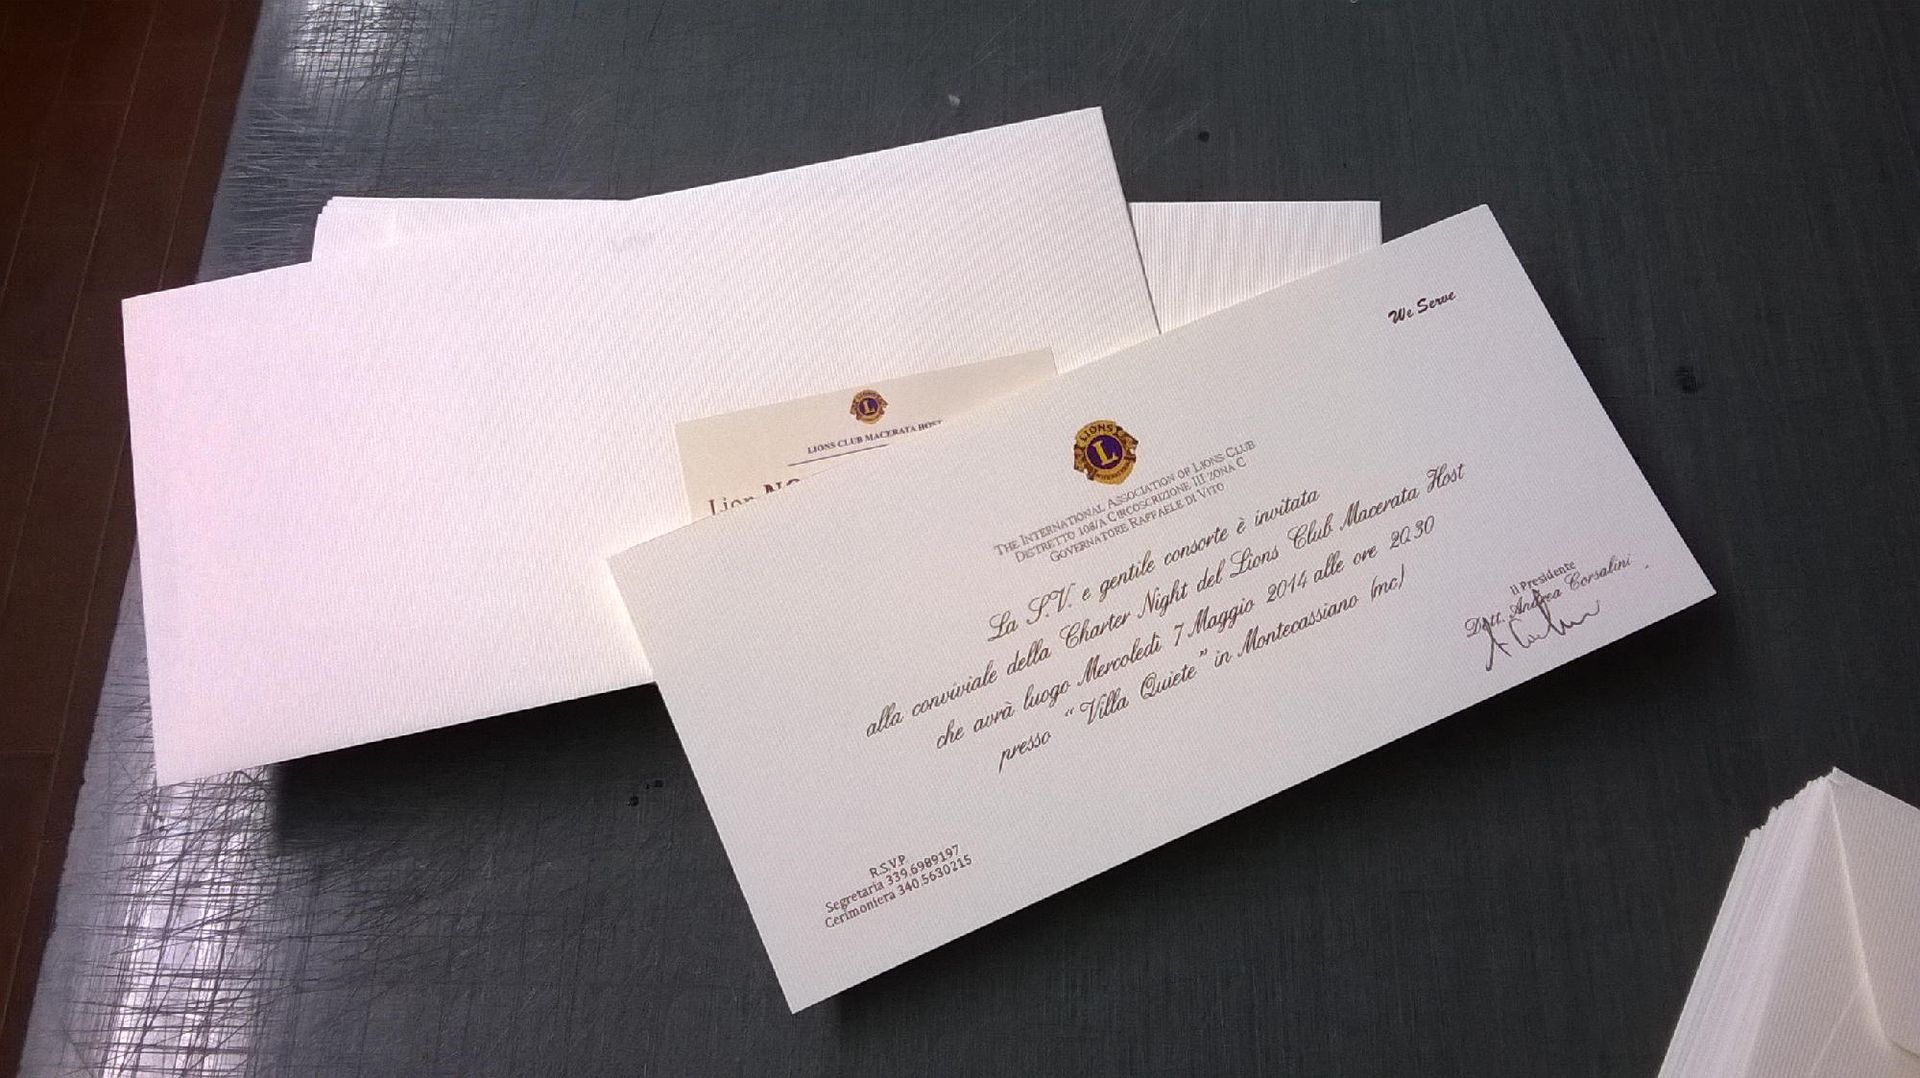 We Serve
LIONS
L
INTERNATIONAL
THE INTERNATIONAL ASSOCIATION OF LIONS CLUB
DISTRETTO 108/A CIRCOSCRIZIONE III ZONA C
GOVERNATORE RAFFAELE DI VITO
La S.V. e gentile consorte è invitata
alla conviviale della Charter Night del Lions Club Macerata Host
che avrà luogo Mercoledì 7 Maggio 2014 alle ore 20.30
presso "Villa Quiete" in Montecassiano (mc)
Il Presidente
Dott. Andrea Corsalini
R.S.V.P.
Segretaria 339.6989197
Cerimoniera 340.5630215
L
LIONS CLUB MACERATA HOST
Lion